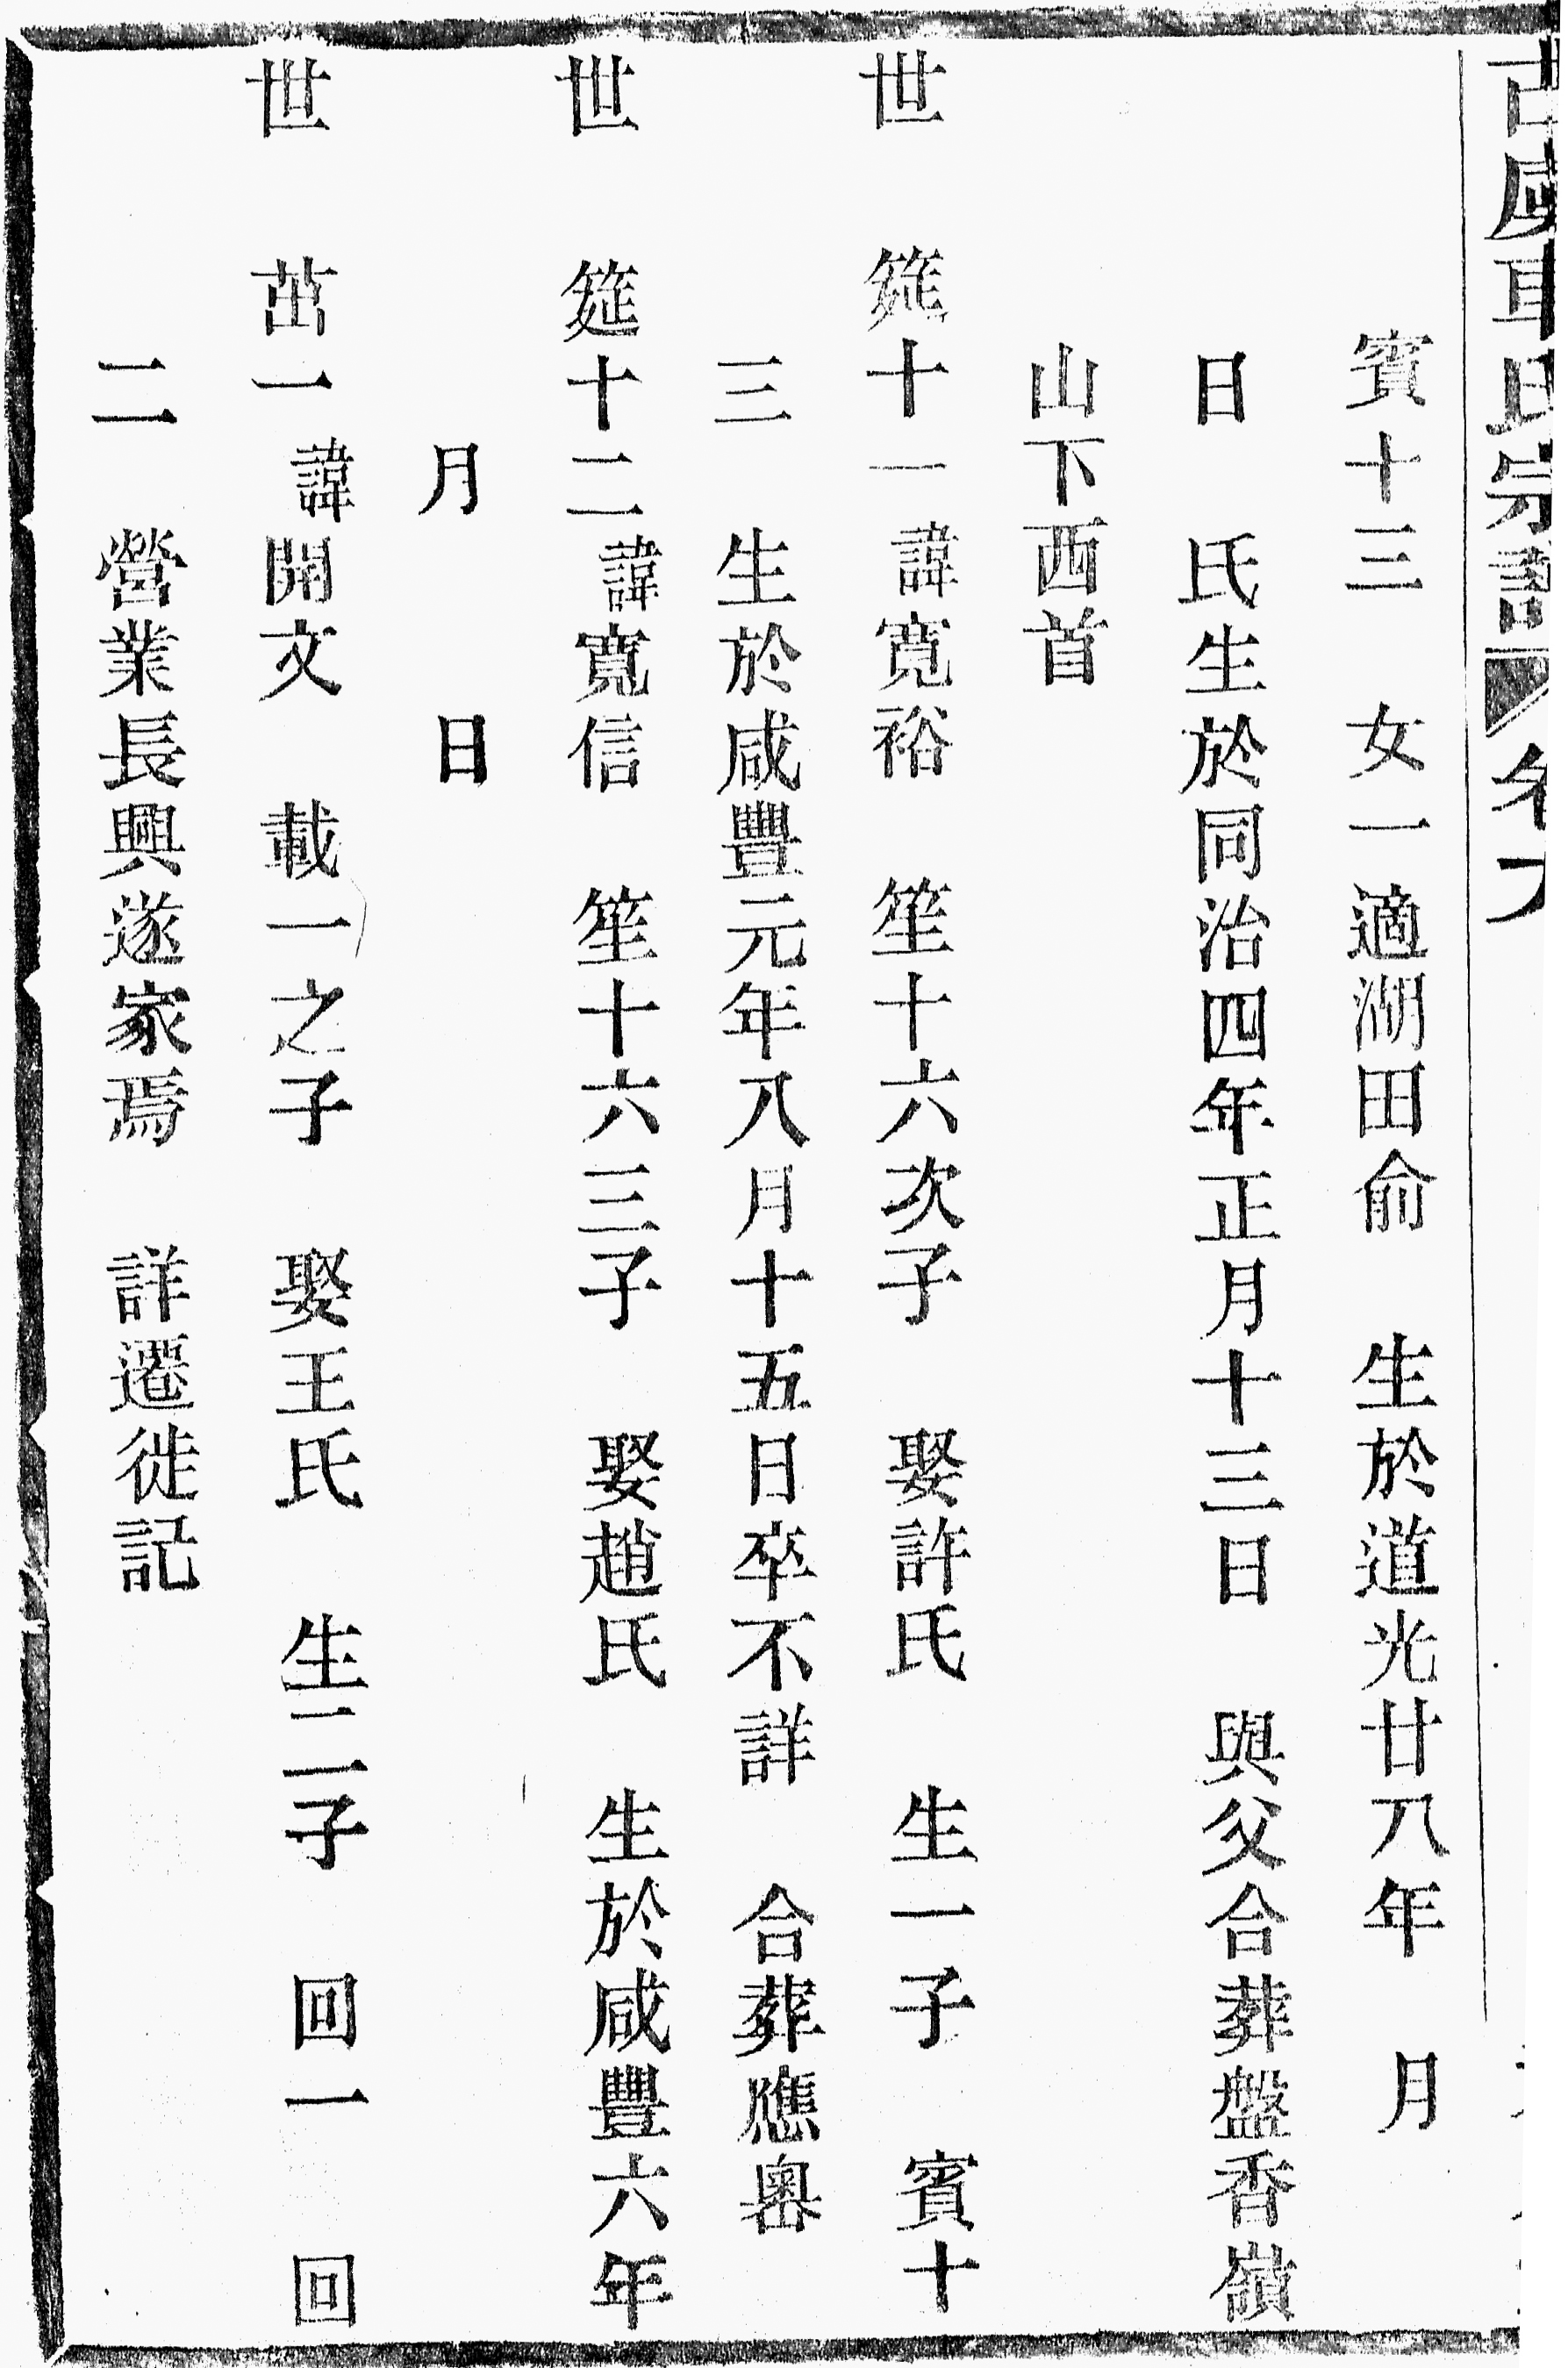 古虞車氏宗譜 卷
賓十三 女一適湖田俞 生於道光廿八年 月
日 氏生於同治四年正月十三日 與父合葬盤香嶺
山下西首
世 筵十一諱寬裕 笙十六次子 娶許氏 生一子 賓十
三 生於咸豐元年八月十五日卒不詳 合葬應嶴
世 筵十二諱寬信 笙十六三子 娶趙氏 生於咸豐六年
月 日
世 茁一諱開文 載一之子 娶王氏 生二子 回一 回
二 營業長興遂家焉 詳遷徙記